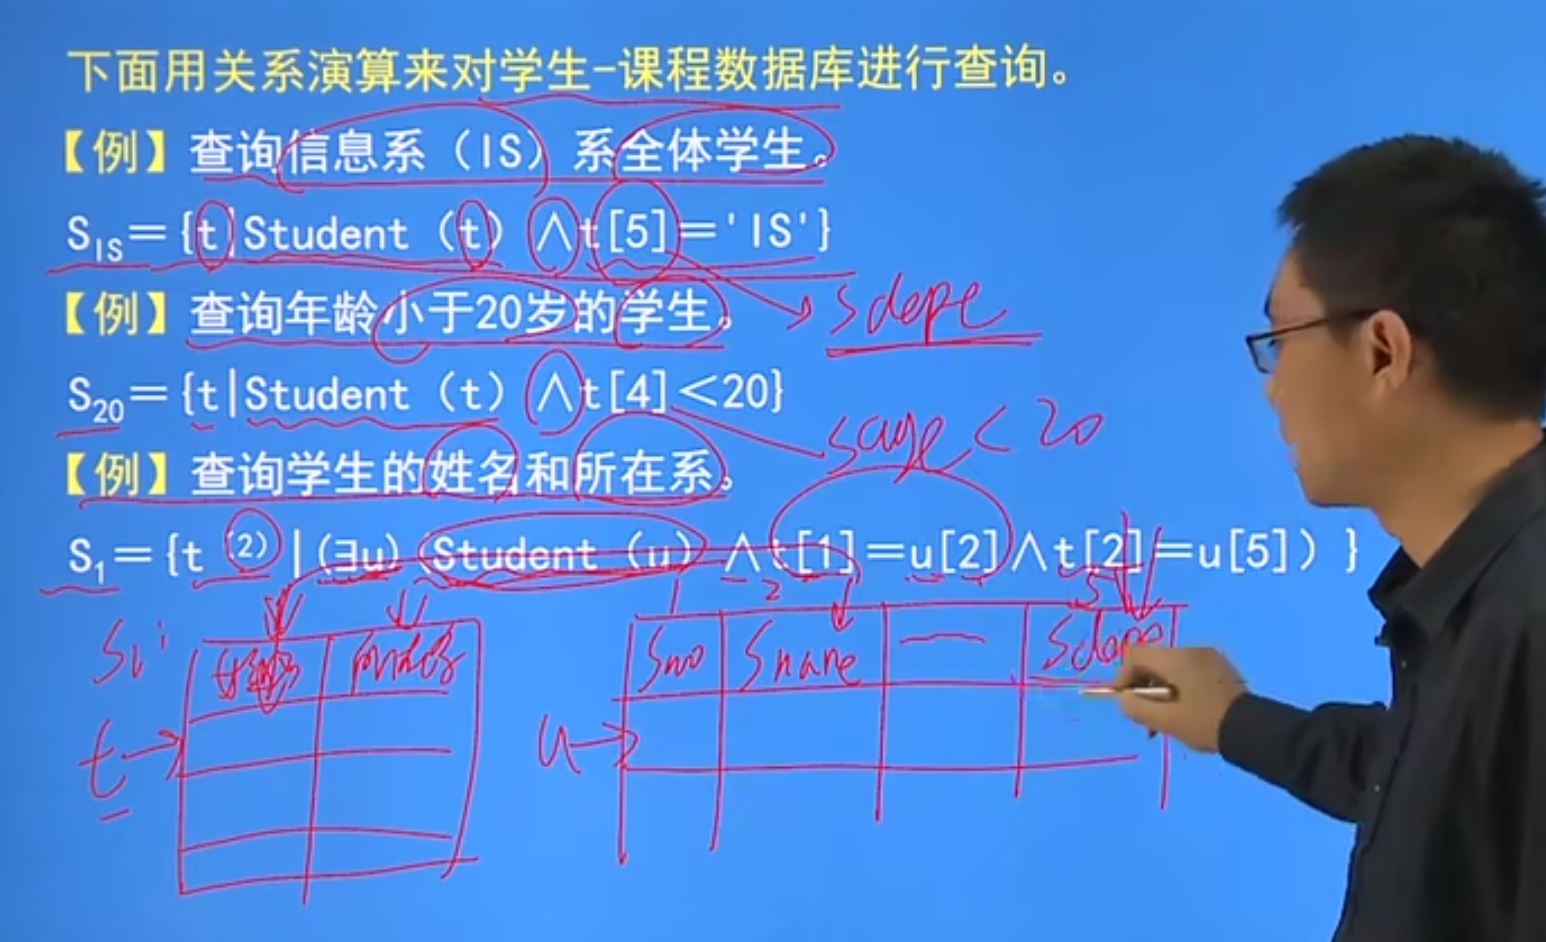 下面用关系演算来对学生-课程数据库进行查询。
【例】查询信息系（IS）系全体学生。
S_IS={t|Student（t）∧t[5]='IS'}
【例】查询年龄小于20岁的学生。
sdept
S_20={t|Student（t）∧t[4]<20}
sage<20
【例】查询学生的姓名和所在系。
S_1={t^(2)|(∃u)（Student（u）∧t[1]=u[2]∧t[2]=u[5]）}
1 2 5
S1:
姓名 所在系
Sno Sname Sdept
t→ u→